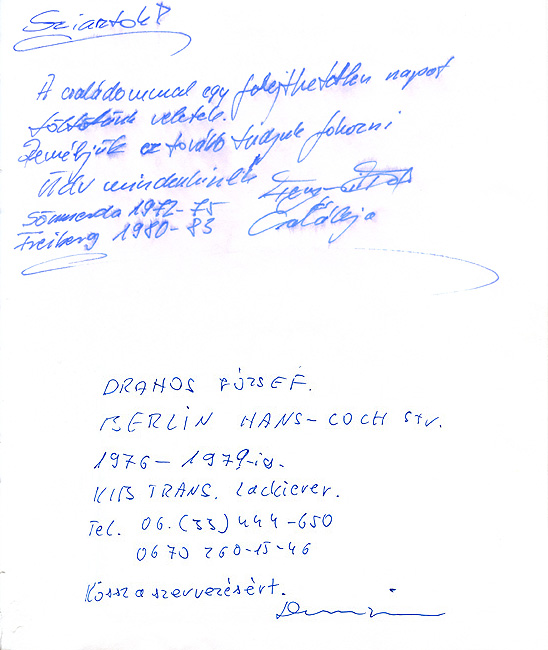 Sziasztok!
A családommal egy felejthetetlen napot
töltöttünk veletek.
Reméljük ez tovább tudjuk fokozni
Üdv mindenkinek
Sömmerda 1972-75
Családja
Freiberg 1980-83
DRAHOS JÓZSEF.
BERLIN HANS-COCH Str.
1976-1979-ig.
KIB TRANS. Lackierer.
Tel. 06.(33) 444-650
0670 260-15-46
Kössz a szervezésért.